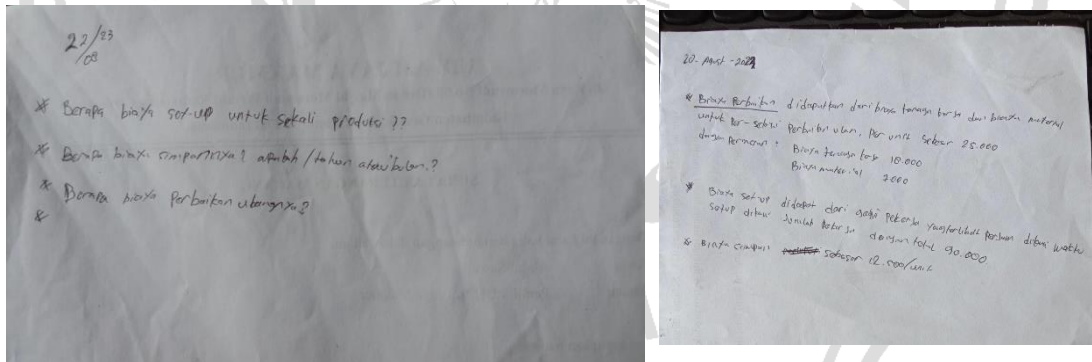 22/23
/08
* Berapa biaya set-up untuk sekali produksi ??
* Berapa biaya simpannya? apakah / tahun atau bulan.?
* Berapa biaya Perbaikan ulangnya?
*
20 - Agust - 2023
* Biaya Perbaikan didapatkan dari biaya tenaga kerja dan biaya material
untuk Per-sekali Perbaikan ulan, Per unit sebesar 25.000
dengan Perincian : Biaya tenaga kerja 18.000
Biaya material 7000
* Biaya set-up didapat dari gaji Pekerja yang terlibat dibagi waktu
setup dikali Jumlah Pekerja dengan total 90.000
* Biaya simpan sebesar 12.500/unit